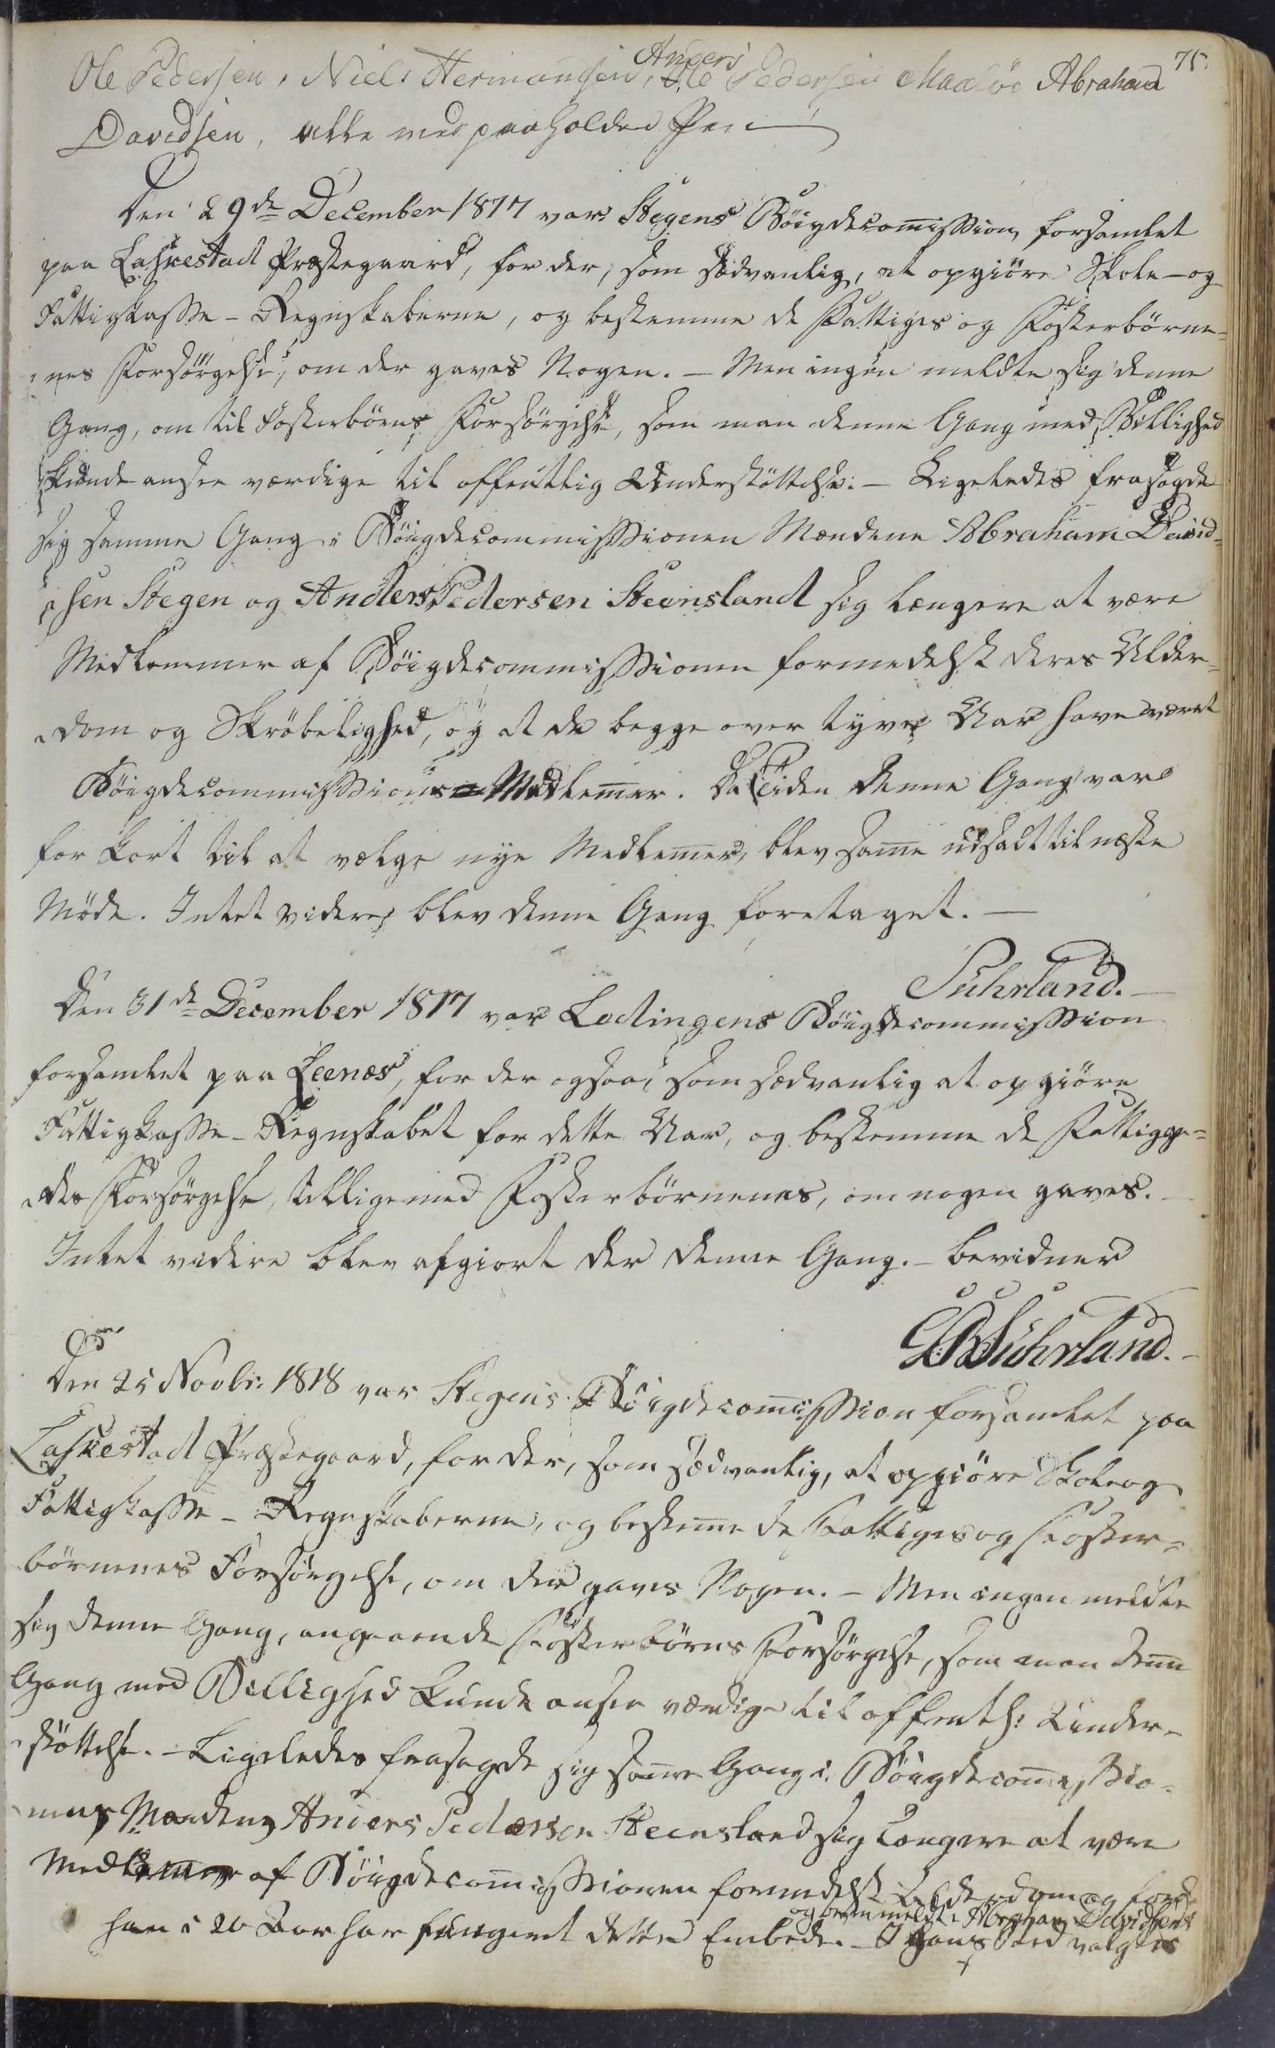 75.
Ole Pedersen, Niels Hermansen, Anders Pedersen Maaløe Abraham
Davidsen, alle med paaholden Pen
Den 29de December 1817 var Stegens Bøigdecommission forsamlet
paa Laskestad Præstegaard, for der, som sædvanlig, at opgiöre Skole- og
Fattigkasse-Regnskaberne, og bestemme de Fattiges og Fosterbörne-
nes Forsörgelse, om der gaves Nogen. - Men ingen meldte sig denne
Gang, om til Fosterbörns Forsörgelse, som man denne Gang med Billighed
kunde ansee værdige til offentlig Understöttelse. - Ligeledes frasagde
sig samme Gang i Böigdecommissionen Mændene Abraham David-
sen Stegen og Anders Pedersen Steensland sig længere at være
Medlemmer af Böigdecommissionen formedelst deres Alder-
dom og Skröbelighed, og at de begge over tyve Aar have været
Böigdecommissions-Medlemer. Da Tiden denne Gang var
for kort til at vælge nye Medlemer, blev same udsatt til næste
Möde. Intet videre blev denne Gang foretaget. -
Suhrland. -
Den 31de December 1817 var Lodingens Böigdecommission
forsamlet paa Leenæs, for der ogsaa, som sædvanlig at opgiöre
Fattigkasse-Regnskabet for dette Aar, og bestemme de Fattige-
des Forsörgelse, tilligemed Fosterbörnenes, om nogen gaves. -
Intet videre blev afgiort der denne Gang. - bevidner
Suhrland. -
Den 25 Novbr: 1818 var Stegens Böigdecomission forsamlet paa
Laskestad Præstegaard, for der, som sædvanlig, at opgiöre Skole og
Fattigkasse-Regnskaberne, og besteme de Fattiges og Foster-
börnenes Forsörgelse, om der gaves Nogen. - Men ingen meldte
sig denne Gang, angaaende Fosterbörns Forsörgelse, som man denne
Gang med Billighed kunde ansee værdige til offentl: Under-
stöttelse. - Ligeledes frasagde sig same Gang i Böigdecomissio-
nens Manden Anders Pedersen Steensland sig længere at være
Medlem af Böigdecomissionen formedelst Alderdom og fordi
og bemeldte Abraham Davidsens
han i 20 Aar har fungeret dette Embede. - I hans Sted valgtes